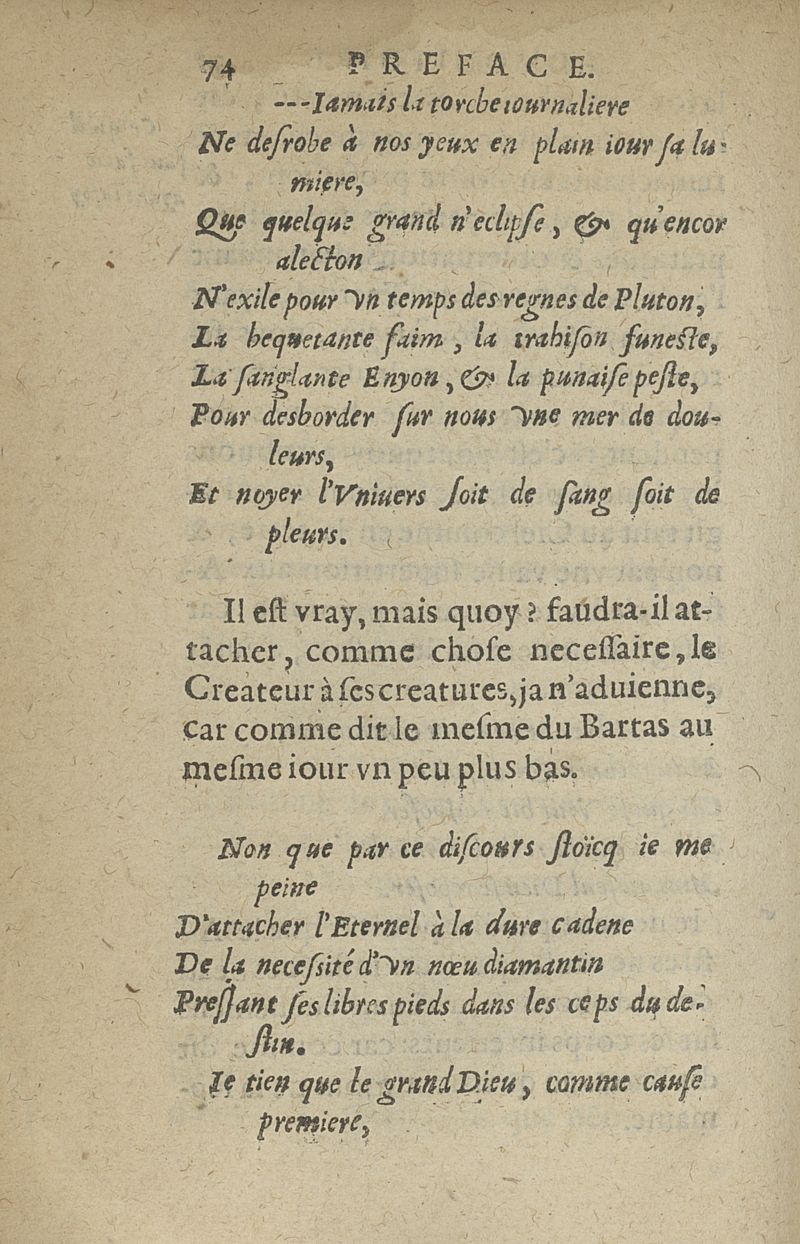 74 PREFACE.
---Iamais la torche iournaliere
Ne deſrobe à nos yeux en plain iour ſa lu-
miere,
Que quelque grand n'eclipſe, & qu'encor
alecton
N'exile pour vn temps des regnes de Pluton,
La bequetante faim, la trahiſon funeſte,
La ſanglante Enyon, & la punaiſe peſte,
Pour desborder ſur nous vne mer de dou-
leurs,
Et noyer l'Vniuers ſoit de ſang ſoit de
pleurs.
Il eſt vray, mais quoy? faudra-il at-
tacher, comme choſe neceſſaire, le
Createur à ſes creatures, ja n'aduienne,
car comme dit le meſme du Bartas au
meſme iour vn peu plus bas.
Non que par ce diſcours ſtoïcq ie me
peine
D'attacher l'Eternel à la dure cadene
De la neceſsité d'vn nœu diamantin
Preſſant ſes libres pieds dans les ceps du de-
ſtin.
Ie tien que le grand Dieu, comme cauſe
premiere,